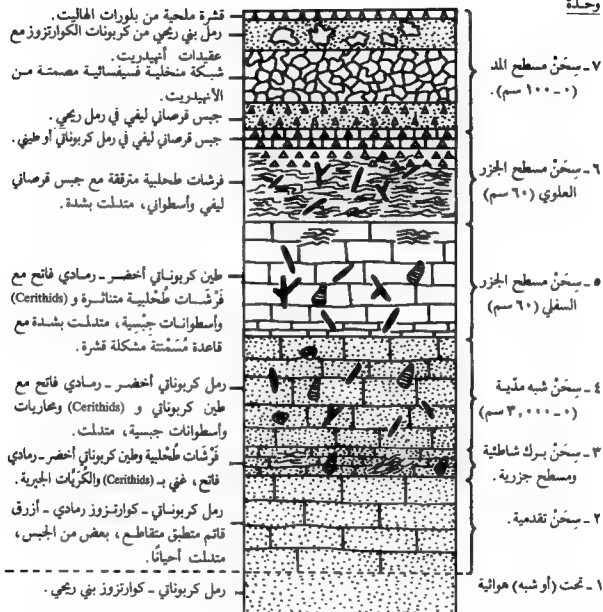 وحدة
قشرة ملحية من بلورات الهاليت.
رمل بني ريحي من كربونات الكوارتزوز مع
عقيدات أنهيدريت.
شبكة منخلية فسيفسائية مصمتة من
الأنهيدريت.
جبس قرصاني ليفي في رمل ريحي.
جبس قرصاني ليفي في رمل كربوناتي أو طيني.
فرشات طحلبية مترققة مع جبس قرصاني
ليفي وأسطواني، متدلمت بشدة.
طين كربوناتي أخضر - رمادي فاتح مع
فَرْشات طُحْلبية متناثرة و (Cerithids)
وأسطوانات جبْسية، متدلمت بشدة مع
قاعدة مُسَمْنتة مشكلة قشرة.
رمل كربوناتي أخضر - رمادي فاتح مع
طين كربوناتي و (Cerithids) ومحاريات
وأسطوانات جبسية، متدلمت.
فَرْشات طُحْلبية وطين كربوناتي أخضر - رمادي
فاتح، غني بـ (Cerithids) والكُرَيَّات الجيرية.
رمل كربوناتي - كوارتزوز رمادي - أزرق
قاتم متطبق متقاطع، بعض من الجبس،
متدلمت أحيانًا.
رمل كربوناتي - كوارتزوز بني ريحي.
٧ - سِحَنْ مسطح المد
(٠ - ١٠٠ سم).
٦ - سِحَنْ مسطح الجزر
العلوي (٦٠ سم)
٥ - سِحَنْ مسطح الجزر
السفلي (٦٠ سم)
٤ - سِحَنْ شبه مدّية
(٠ - ٣,٠٠٠ سم)
٣ - سِحَنْ برك شاطئية
ومسطح جزرية.
٢ - سِحَنْ تقدمية.
١ - تحت (أو شبه) هوائية